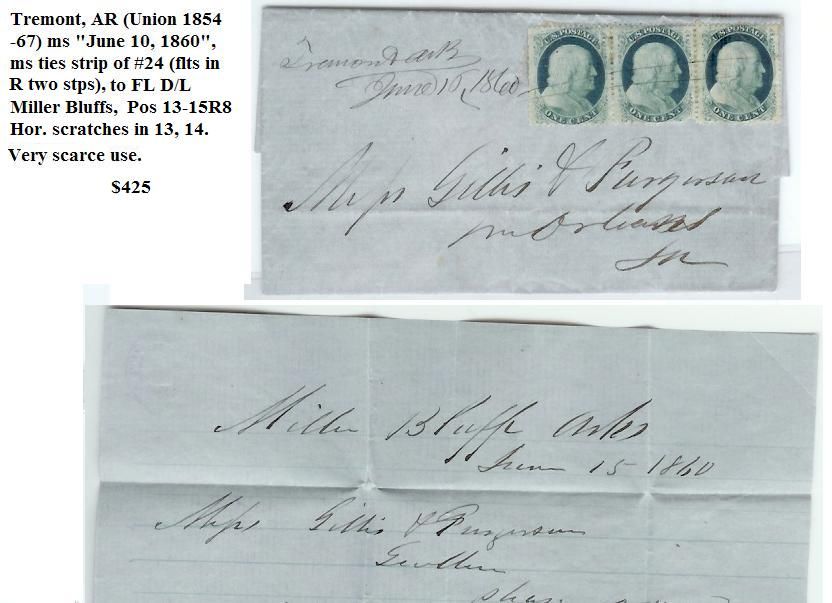 Tremont, AR (Union 1854
-67) ms "June 10, 1860",
ms ties strip of #24 (flts in
R two stps), to FL D/L
Miller Bluffs, Pos 13-15R8
Hor. scratches in 13, 14.
Very scarce use.
$425
Tremont Ark
June 10, 1860
U.S. POSTAGE
ONE CENT
U.S. POSTAGE
ONE CENT
U.S. POSTAGE
ONE CENT
Mess Gillis & Furgerson
Orleans
La
Miller Bluffs Arks
June 15 1860
Mess Gillis & Furgerson
Gentlemen